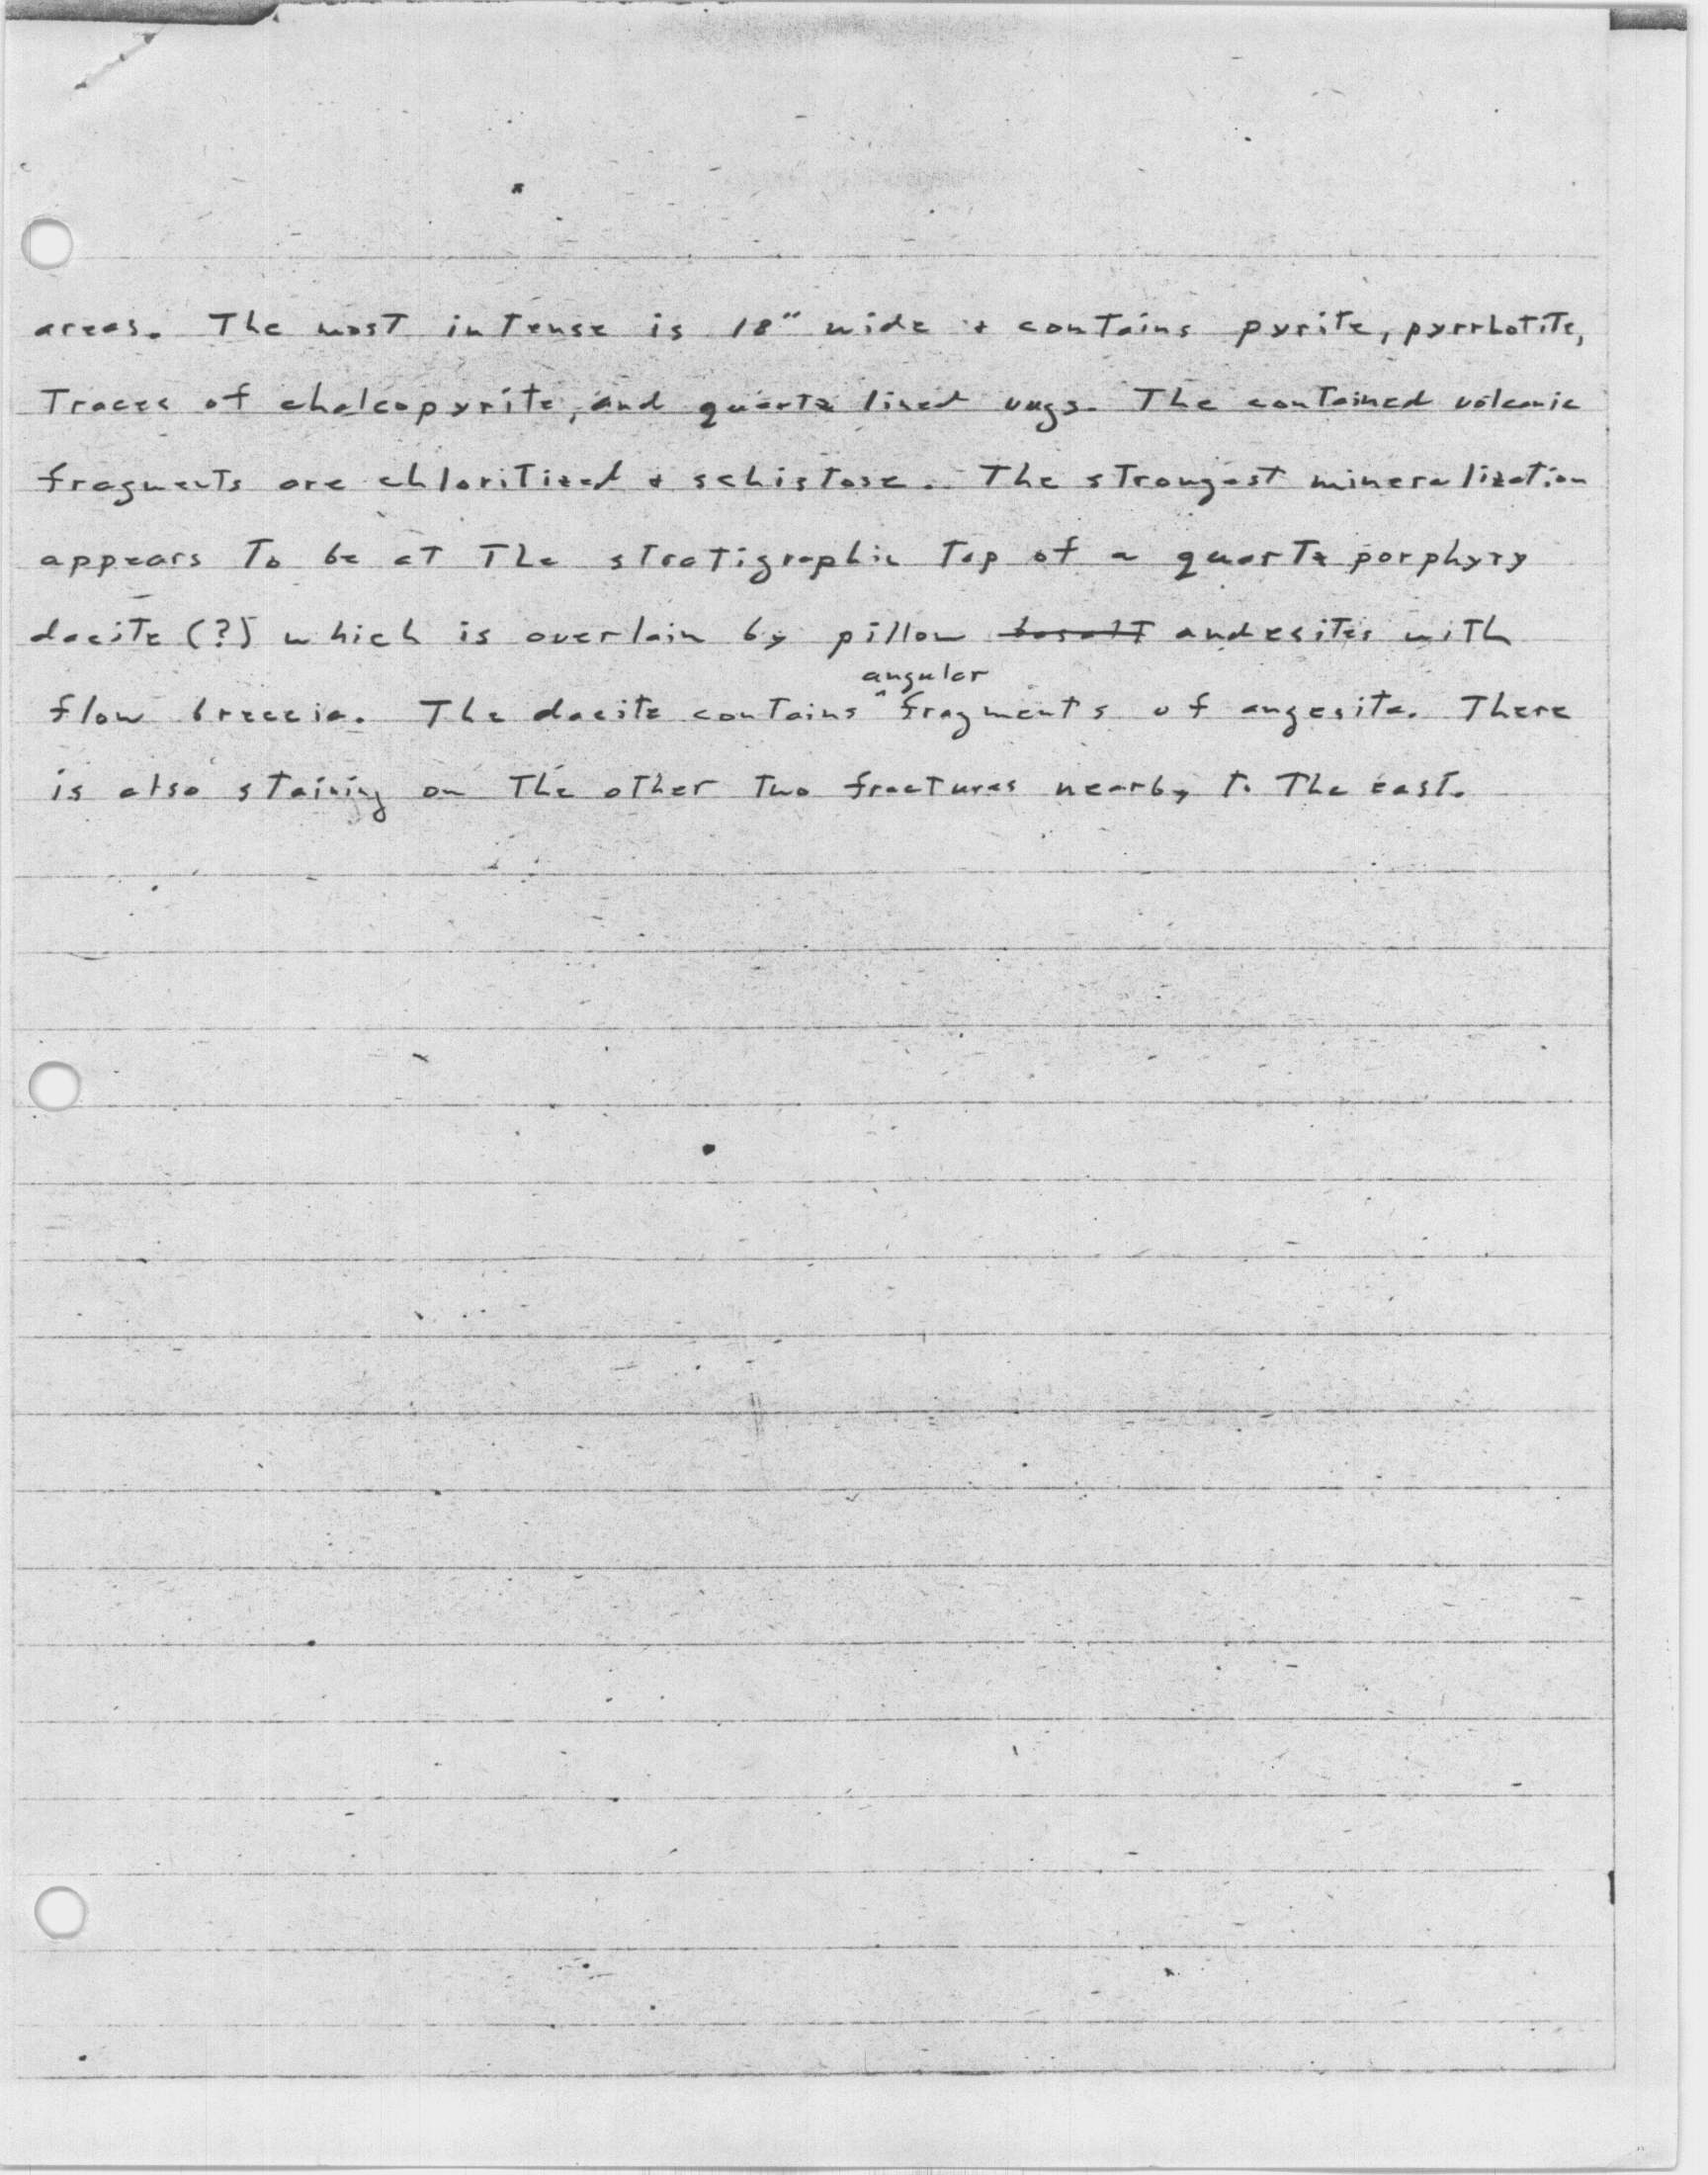 areas. The most intense is 18" wide + contains pyrite, pyrrhotite,
Traces of chalcopyrite, and quartz lined vugs. The contained volcanic
fragments are chloritized + schistose. The strongest mineralization
appears to be at the stratigraphic top of a quartz porphyry
dacite (?) which is overlain by pillow basalt andesites with
angular
flow breccia. The dacite contains ^ fragments of angesite. There
is also staining on the other two fractures nearby to the east.